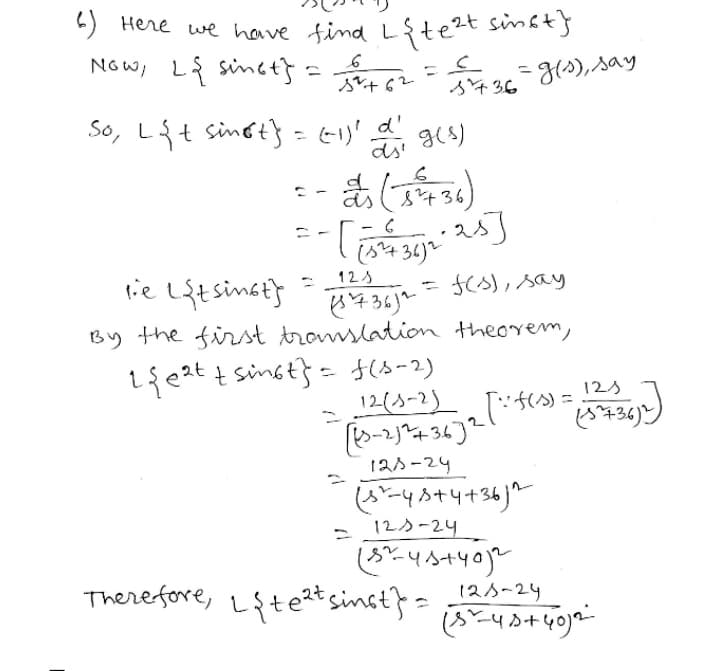 6) Here we have find L{te^2t sin6t}
Now, L{ sin6t} = 6/(s²+6²) = 6/(s²+36) = g(s), say
So, L{t sin6t} = (-1)¹ d¹/ds¹ g(s)
= - d/ds (6/(s²+36))
= - [-6/(s²+36)² · 2s]
i.e L{tsin6t} = 12s/(s²+36)² = f(s), say
By the first translation theorem,
L{e^2t t sin6t} = f(s-2)
= 12(s-2)/[(s-2)²+36]² [∵ f(s) = 12s/(s²+36)²]
= 12s-24/(s²-4s+4+36)²
= 12s-24/(s²-4s+40)²
Therefore, L{te^2t sin6t} = 12s-24/(s²-4s+40)².